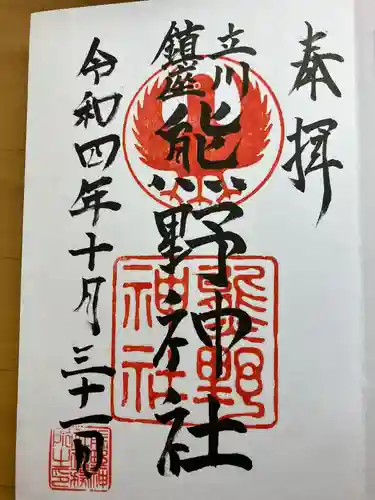 奉拝
立川
鎮座
熊野神社
熊野
神社
令和四年十月三十一日